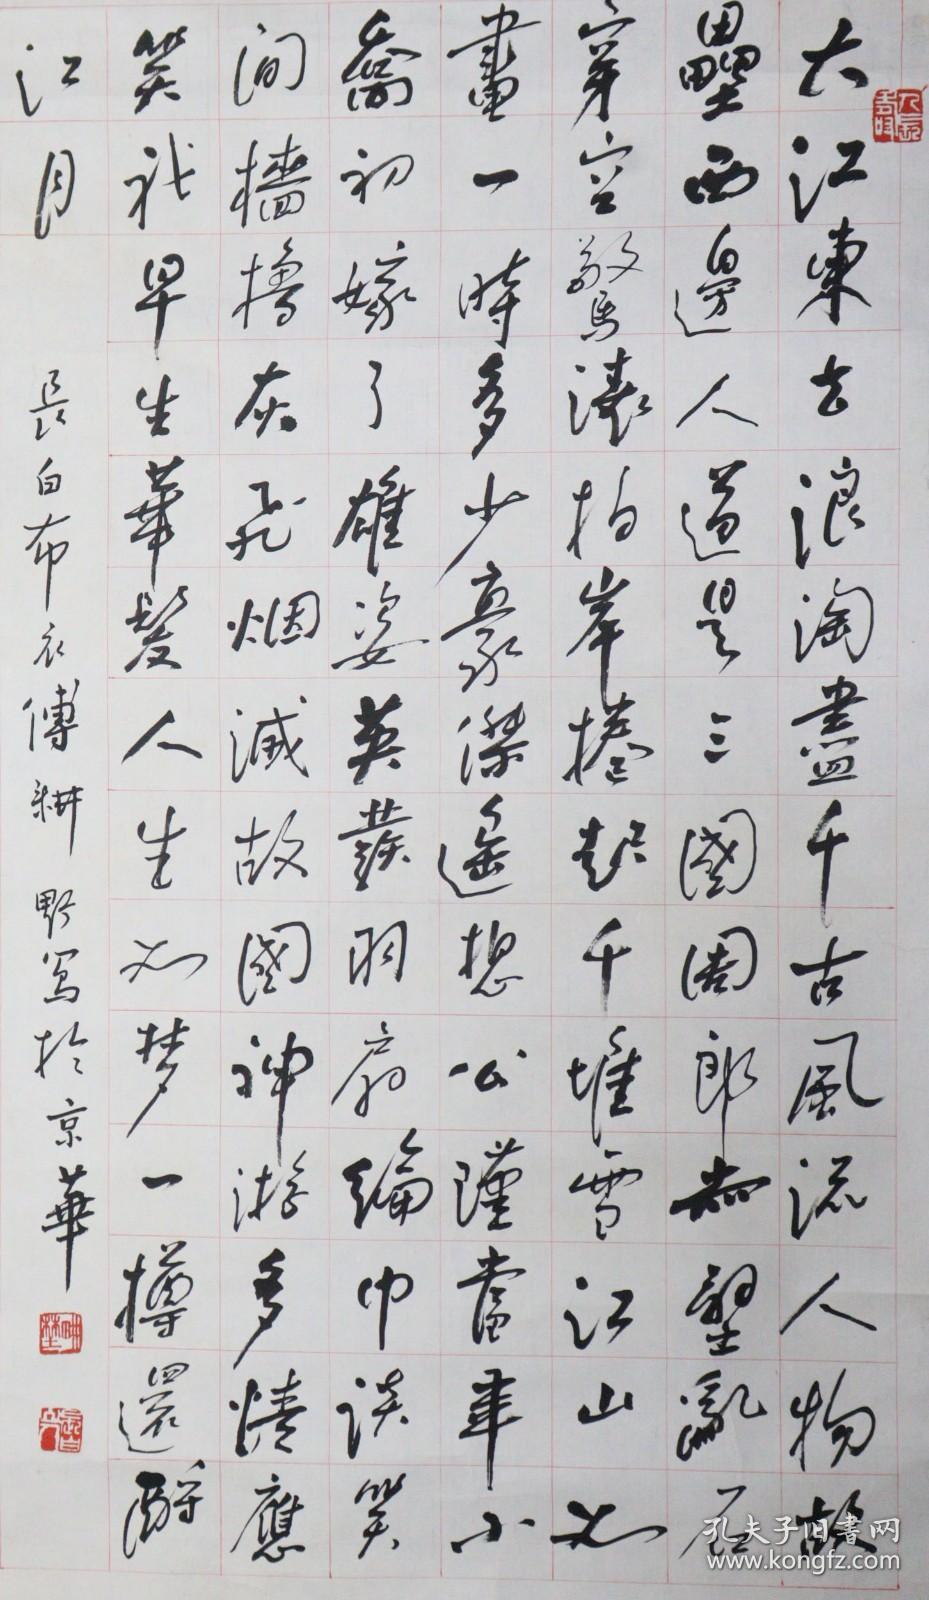 大江東去浪淘盡千古風流人物故
壘西邊人道是三國周郎赤壁亂石
穿空驚濤拍岸捲起千堆雪江山如
畫一時多少豪傑遙想公瑾當年小
喬初嫁了雄姿英發羽扇綸巾談笑
間檣櫓灰飛烟滅故國神游多情應
笑我早生華髮人生如梦一樽還酹
江月
長白布衣傅耕野寫於京華
孔夫子旧书网
www.kongfz.com